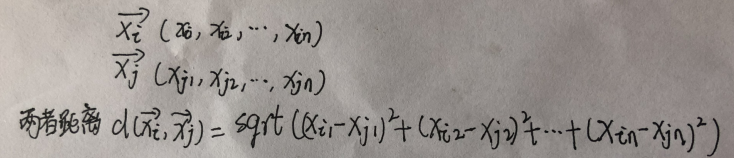 $\overrightarrow{x_i}$ ($x_{i1}$, $x_{i2}$, ⋯, $x_{in}$)
$\overrightarrow{x_j}$ ($x_{j1}$, $x_{j2}$, ⋯, $x_{jn}$)
两者距离 d($\overrightarrow{x_i}$, $\overrightarrow{x_j}$) = sqrt (($x_{i1}$-$x_{j1}$)²+($x_{i2}$-$x_{j2}$)²+⋯+($x_{in}$-$x_{jn}$)²)